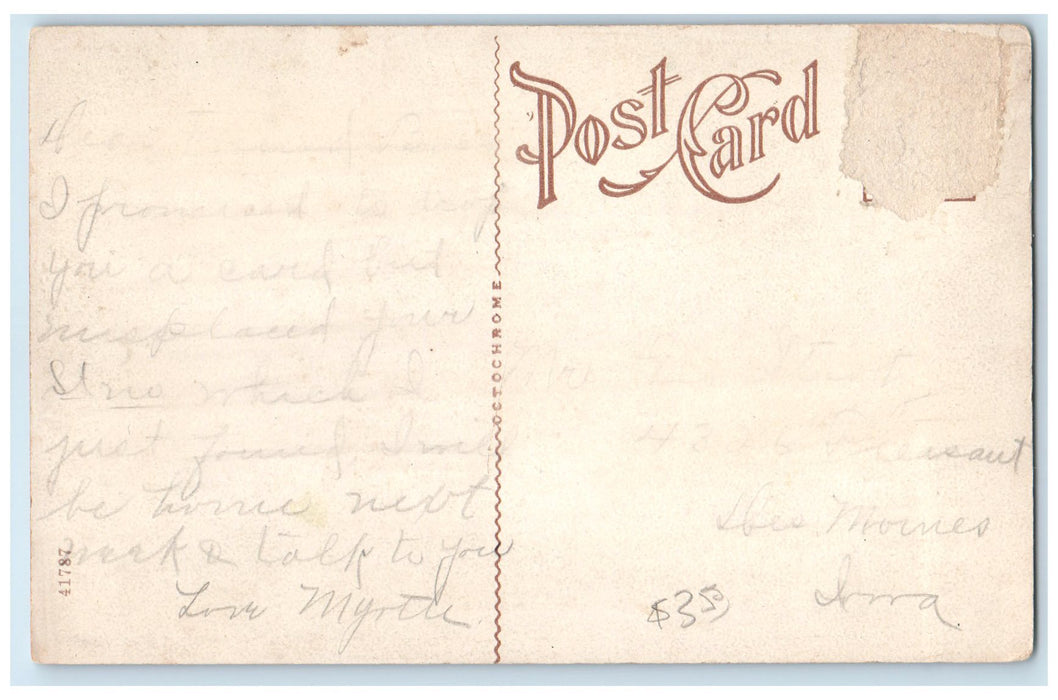 Post Card
I promised to drop
you a card but
misplaced your
St no which I
just found I will
be home next
week & talk to you
Love Myrtle
41787
OCTOCHROME
Pleasant
Des Moines
Iowa
$3.50